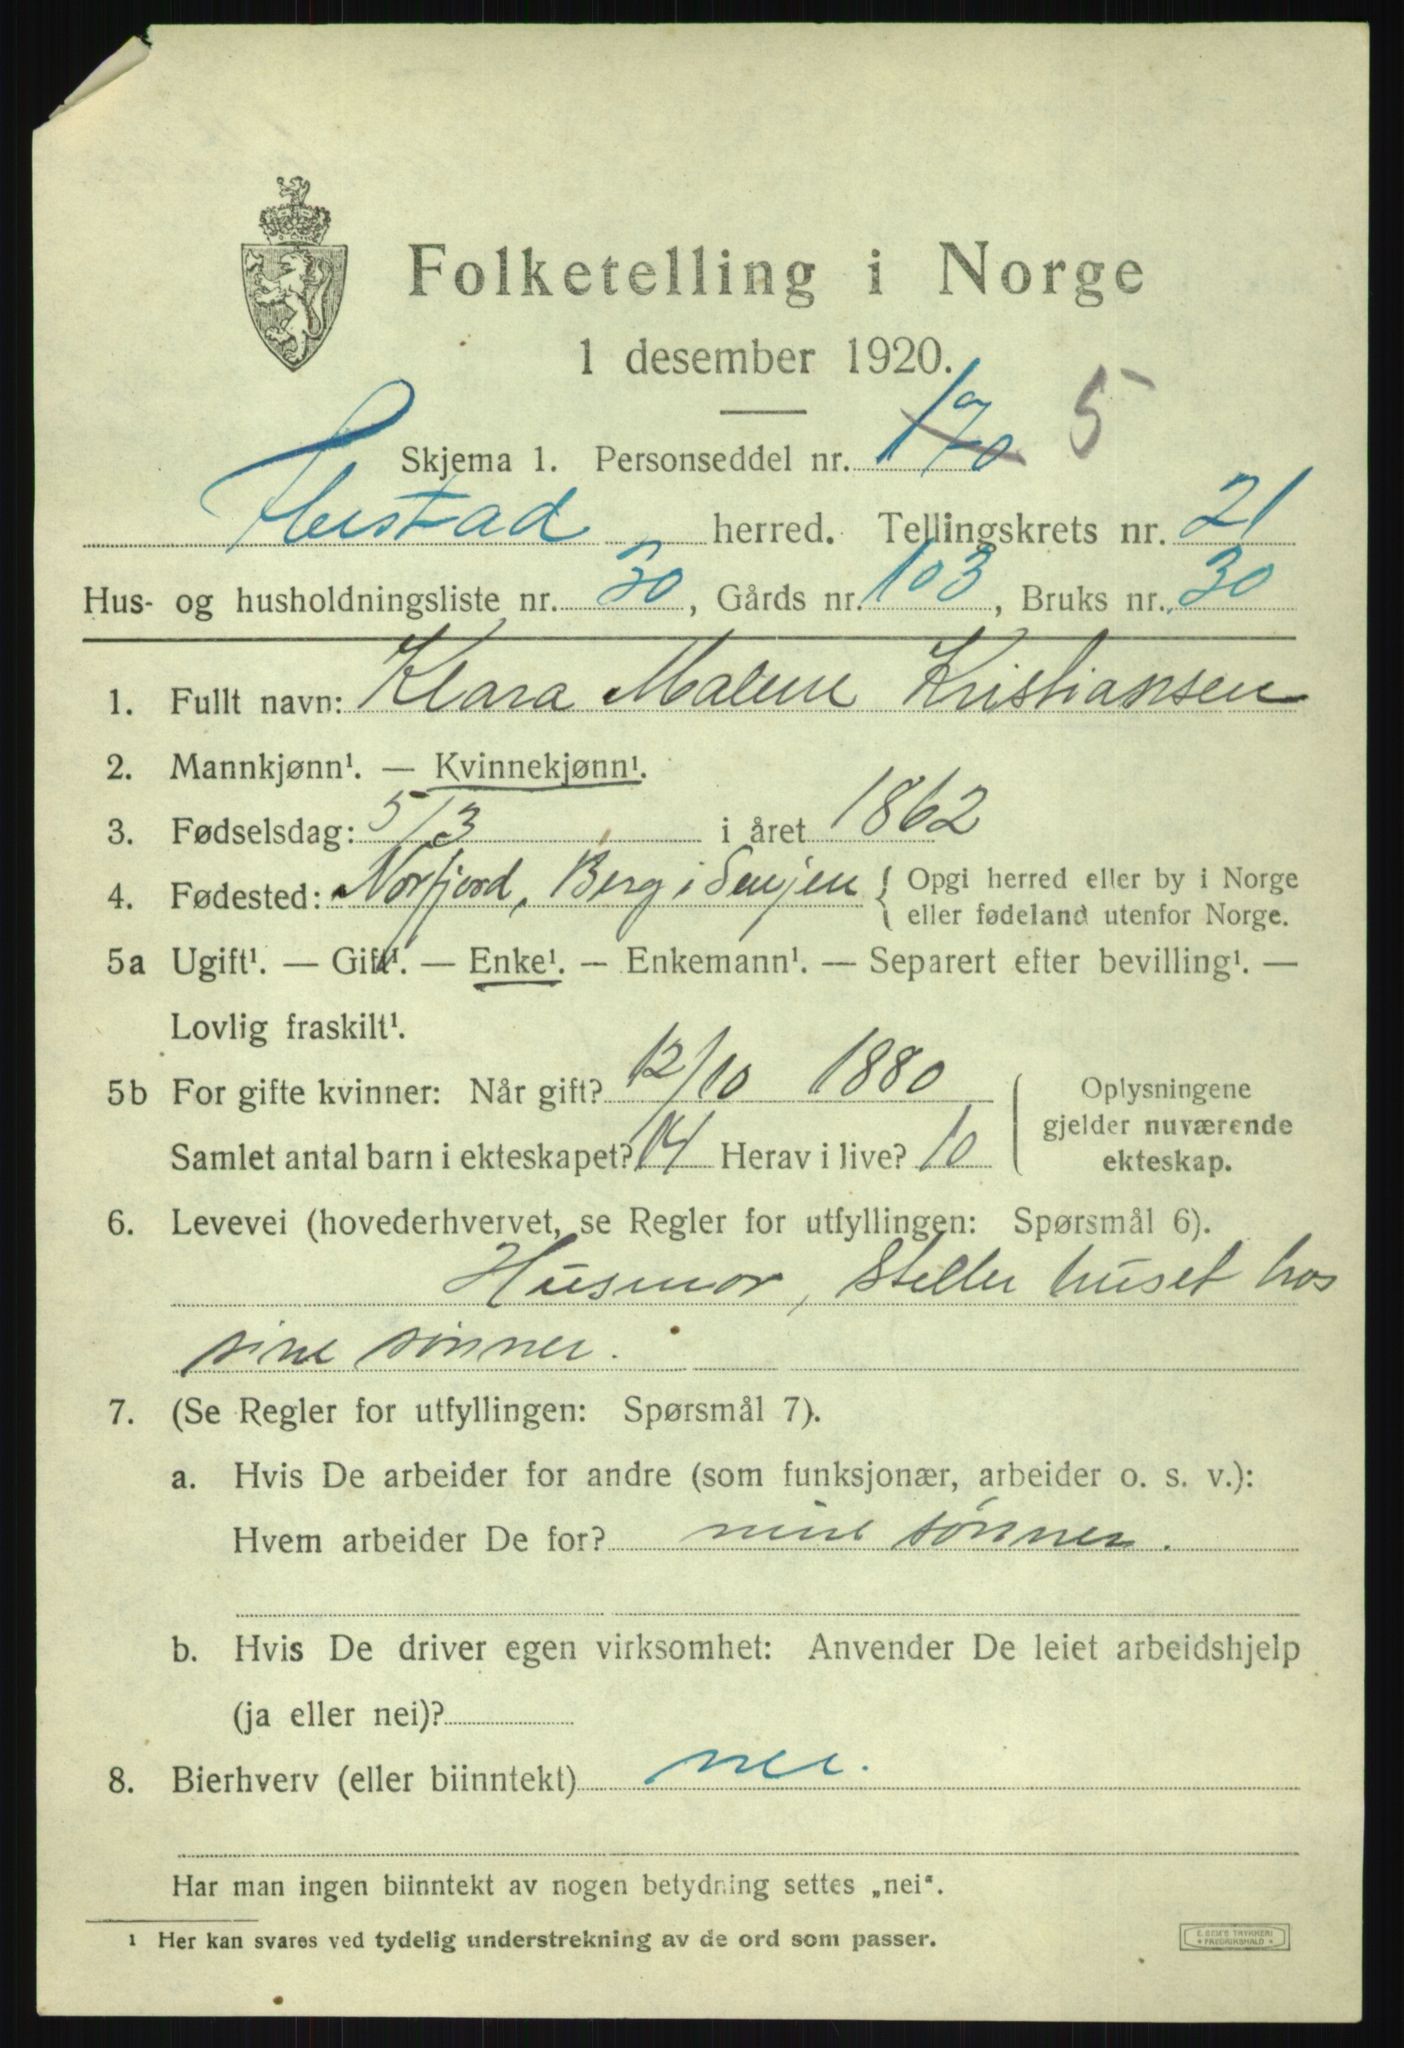 Folketelling i Norge
1 desember 1920.
Skjema 1. Personseddel nr. 170 5
Ibestad herred. Tellingskrets nr. 21
Hus- og husholdningsliste nr. 30, Gårds nr. 103, Bruks nr. 30
1. Fullt navn: Klara Malene Kristiansen
2. Mannkjønn¹. — Kvinnekjønn¹.
3. Fødselsdag: 5/3 i året 1862
4. Fødested: Norfjord, Berg i Senjen { Opgi herred eller by i Norge
eller fødeland utenfor Norge.
5a Ugift¹. — Gift¹. — Enke¹. — Enkemann¹. — Separert efter bevilling¹. —
Lovlig fraskilt¹.
5b For gifte kvinner: Når gift? 12/10 1880
Samlet antal barn i ekteskapet? 14 Herav i live? 10
Oplysningene
gjelder nuværende
ekteskap.
6. Levevei (hovederhvervet, se Regler for utfyllingen: Spørsmål 6).
Husmor, steller huset hos
sine sønner.
7. (Se Regler for utfyllingen: Spørsmål 7).
a. Hvis De arbeider for andre (som funksjonær, arbeider o. s. v.):
Hvem arbeider De for? mine sønner.
b. Hvis De driver egen virksomhet: Anvender De leiet arbeidshjelp
(ja eller nei)?
8. Bierhverv (eller biinntekt) nei.
Har man ingen biinntekt av nogen betydning settes „nei“.
¹ Her kan svares ved tydelig understrekning av de ord som passer.
E. SEM'S TRYKKERI
* FREDRIKSHALD *